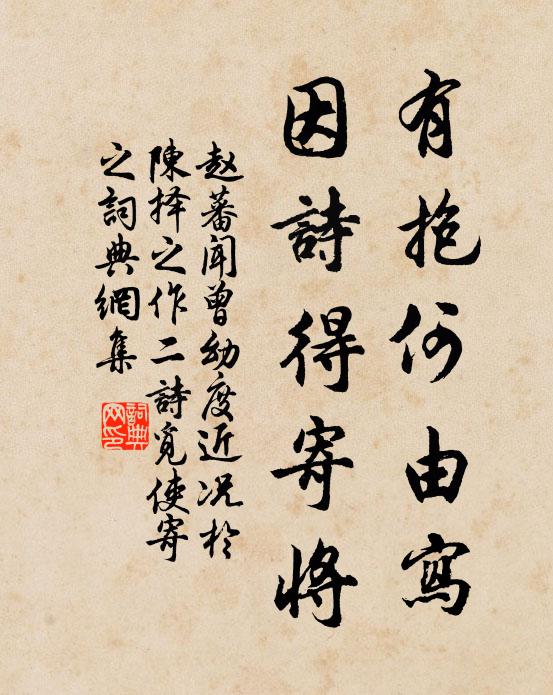 有抱何由寫
因詩得寄將
赵蕃闻曾幼度近况於
陳择之作二詩覓使寄
之詞典網集
詞典
网印